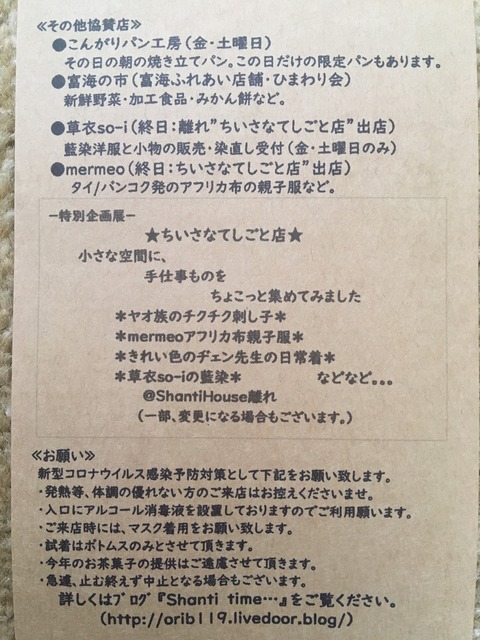 ≪その他協賛店≫
●こんがりパン工房(金・土曜日)
その日の朝の焼き立てパン。この日だけの限定パンもあります。
●富海の市(富海ふれあい店舗・ひまわり会)
新鮮野菜・加工食品・みかん餅など。
●草衣so-i(終日:離れ"ちいさなてしごと店"出店)
藍染洋服と小物の販売・染直し受付(金・土曜日のみ)
●mermeo(終日:ちいさなてしごと店"出店)
タイ/バンコク発のアフリカ布の親子服など。
-特別企画展-
★ちいさなてしごと店★
小さな空間に、
手仕事ものを
ちょこっと集めてみました
*ヤオ族のチクチク刺し子*
*mermeoアフリカ布親子服*
*きれい色のヂェン先生の日常着*
*草衣so-iの藍染* などなど。。。
@ShantiHouse離れ
(一部、変更になる場合もございます。)
≪お願い≫
新型コロナウイルス感染予防対策として下記をお願い致します。
・発熱等、体調の優れない方のご来店はお控えくださいませ。
・入口にアルコール消毒液を設置しておりますのでご利用願います。
・ご来店時には、マスク着用をお願い致します。
・試着はボトムスのみとさせて頂きます。
・今年のお茶菓子の提供はご遠慮させて頂きます。
・急遽、止む終えず中止となる場合もございます。
詳しくはブログ『Shanti time…』をご覧ください。
(http://orib119.livedoor.blog/)